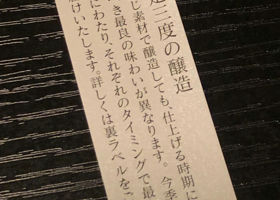 三度の醸造
じ素材で醸造しても、仕上げる時期に
き最良の味わいが異なります。今季
にわたり、それぞれのタイミングで最
けいたします。詳しくは裏ラベルをご